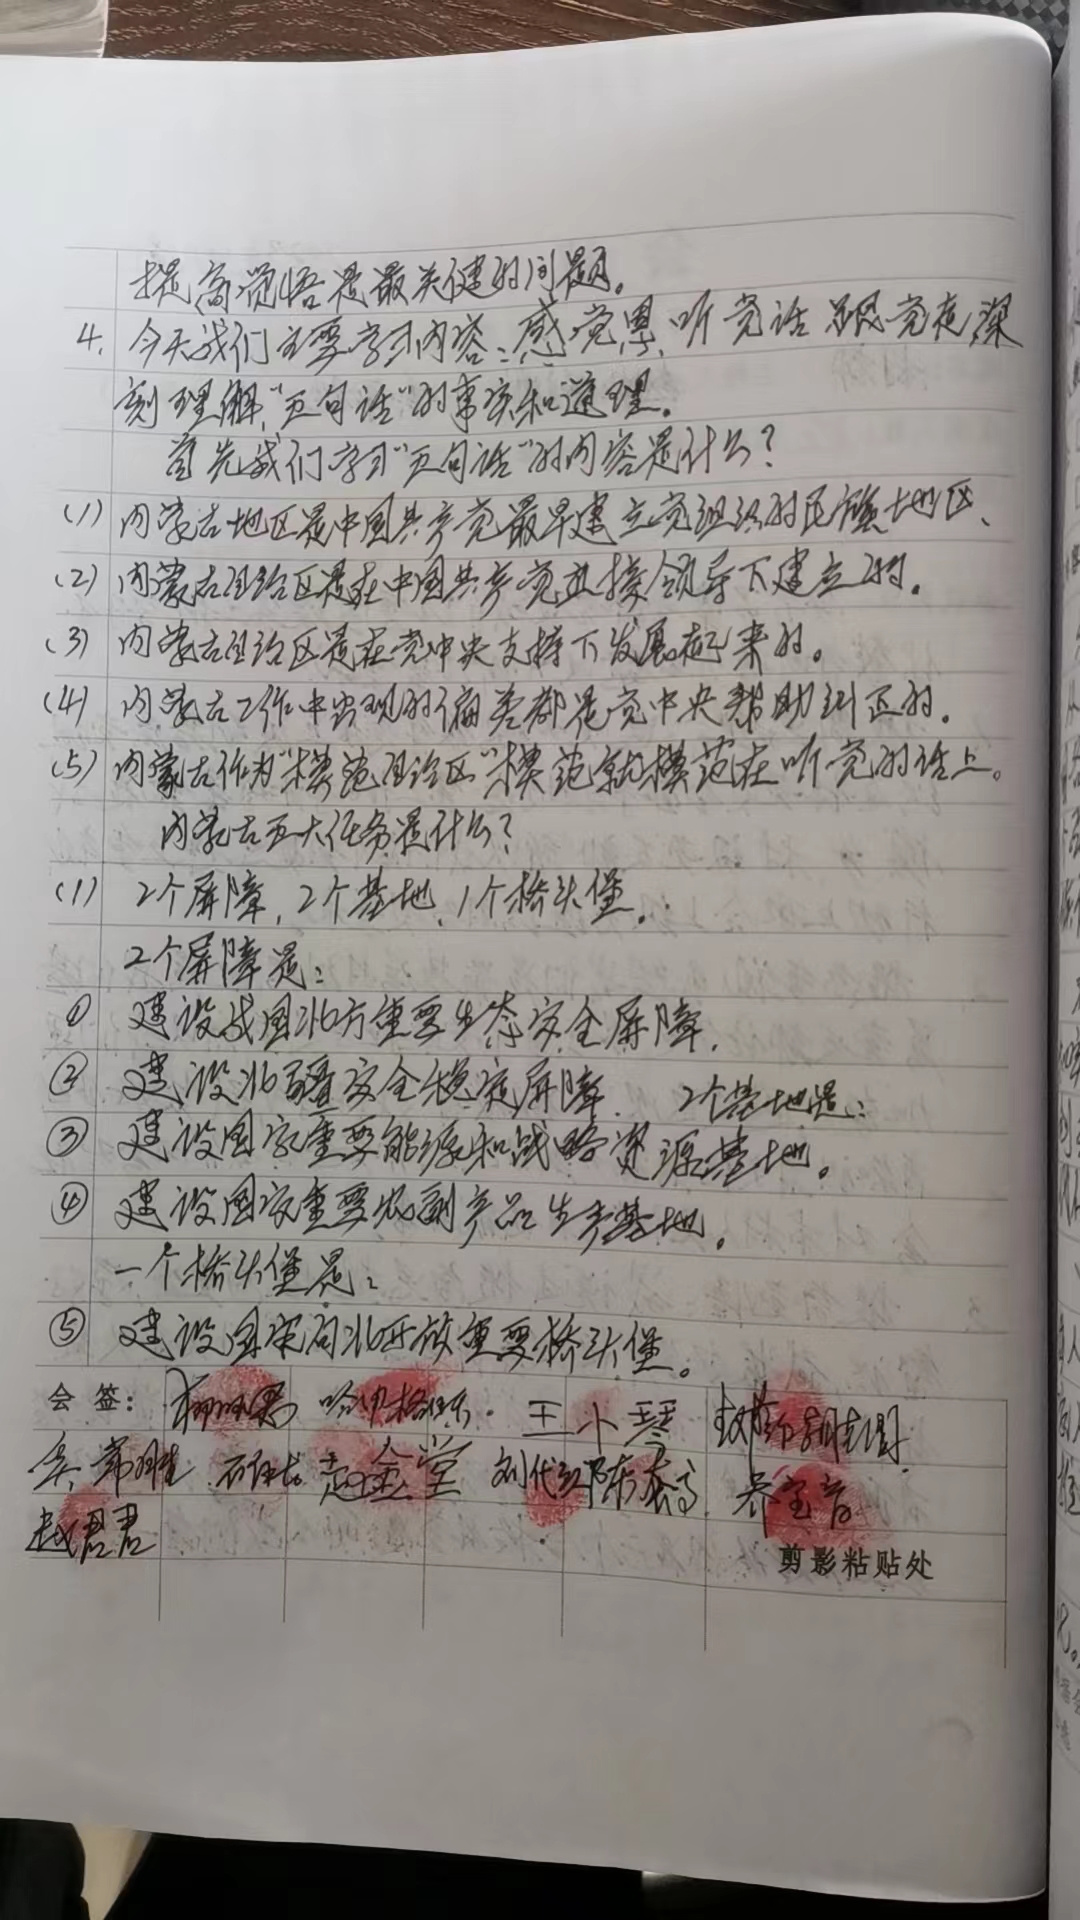 提高觉悟是最关键的问题。
4. 今天我们主要学习内容：感党恩、听党话、跟党走，深
刻理解“五句话”的事实和道理。
首先我们学习“五句话”的内容是什么？
(1) 内蒙古地区是中国共产党最早建立党组织的民族地区、
(2) 内蒙古自治区是在中国共产党直接领导下建立的。
(3) 内蒙古自治区是在党中央支持下发展起来的。
(4) 内蒙古工作中出现的偏差都是党中央帮助纠正的。
(5) 内蒙古作为“模范自治区”模范就模范在听党的话上。
内蒙古五大任务是什么？
(1) 2个屏障，2个基地、1个桥头堡。
2个屏障是：
① 建设我国北方重要生态安全屏障，
② 建设北疆安全稳定屏障， 2个基地是：
③ 建设国家重要能源和战略资源基地。
④ 建设国家重要农副产品生产基地。
一个桥头堡是：
⑤ 建设国家向北开放重要桥头堡。
会签： 王小琴
赵金堂 刘代 乔宝音
赵君君
剪影粘贴处